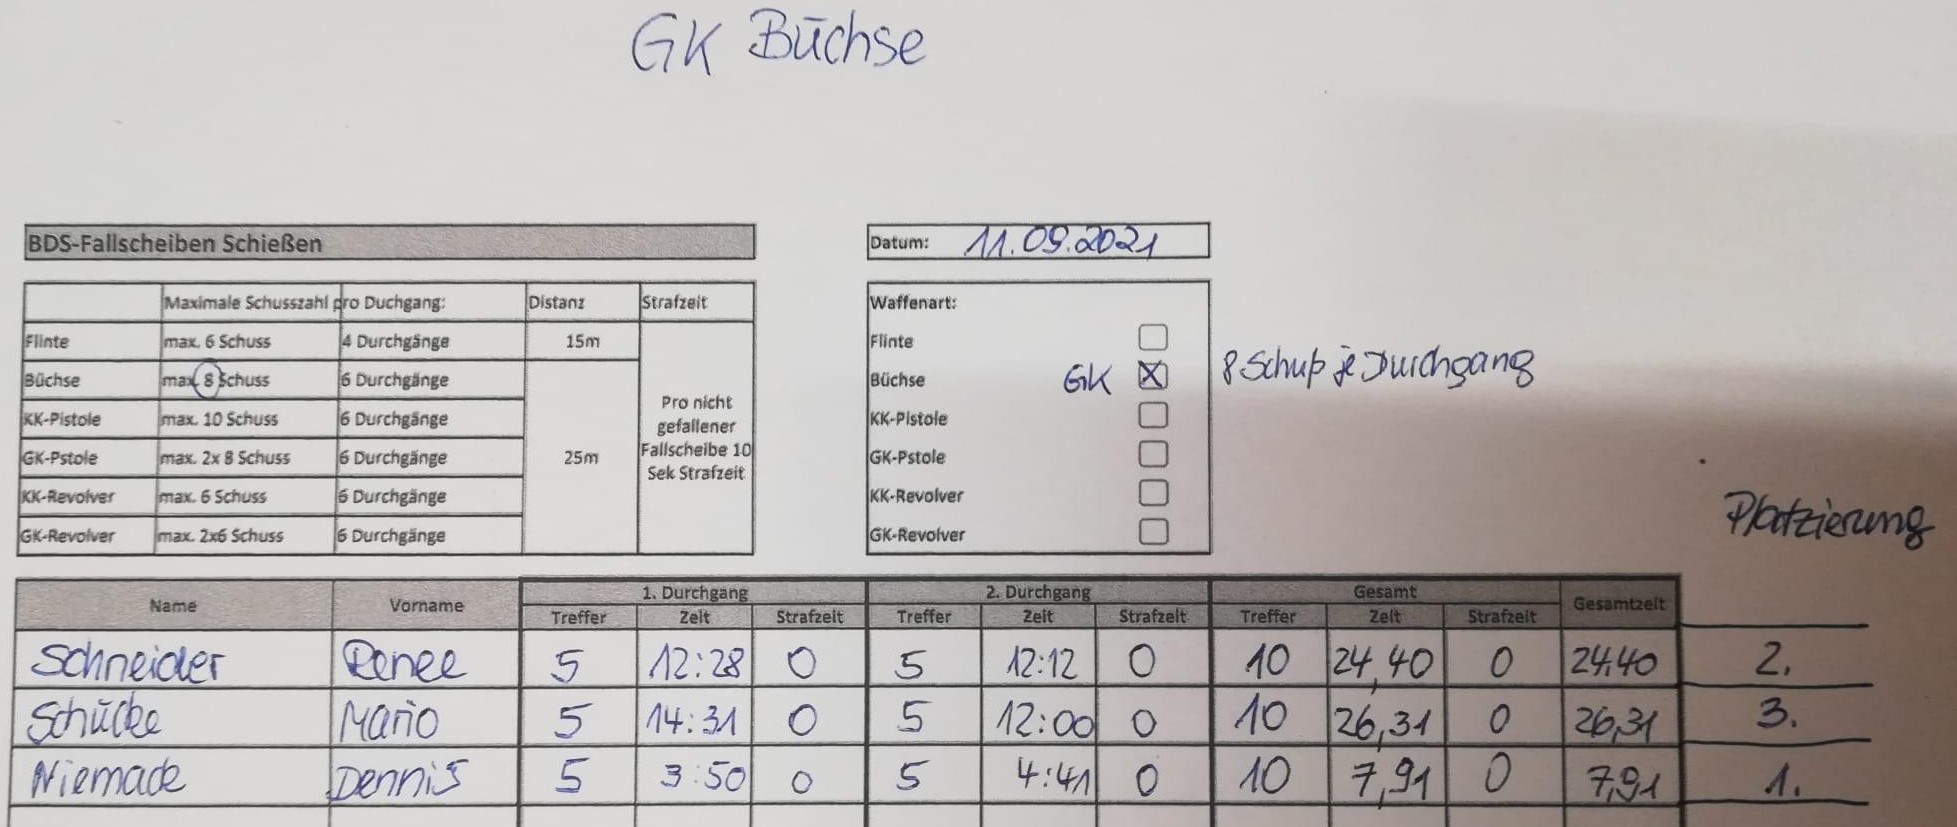 GK Büchse
BDS-Fallscheiben Schießen
Datum: 11.09.2021
Maximale Schusszahl pro Duchgang: Distanz Strafzeit
Flinte max. 6 Schuss 4 Durchgänge 15m
Büchse max. 8 Schuss 6 Durchgänge
KK-Pistole max. 10 Schuss 6 Durchgänge
GK-Pstole max. 2x 8 Schuss 6 Durchgänge 25m
KK-Revolver max. 6 Schuss 6 Durchgänge
GK-Revolver max. 2x6 Schuss 6 Durchgänge
Pro nicht
gefallener
Fallscheibe 10
Sek Strafzeit
Waffenart:
Flinte
Büchse GK X 8 Schuß je Durchgang
KK-Pistole
GK-Pstole
KK-Revolver
GK-Revolver
Platzierung
Name Vorname 1. Durchgang 2. Durchgang Gesamt Gesamtzeit
Treffer Zeit Strafzeit Treffer Zeit Strafzeit Treffer Zeit Strafzeit
Schneider Renee 5 12:28 0 5 12:12 0 10 24,40 0 24,40 2.
Schücke Mario 5 14:31 0 5 12:00 0 10 26,31 0 26,31 3.
Niemade Dennis 5 3:50 0 5 4:41 0 10 7,91 0 7,91 1.